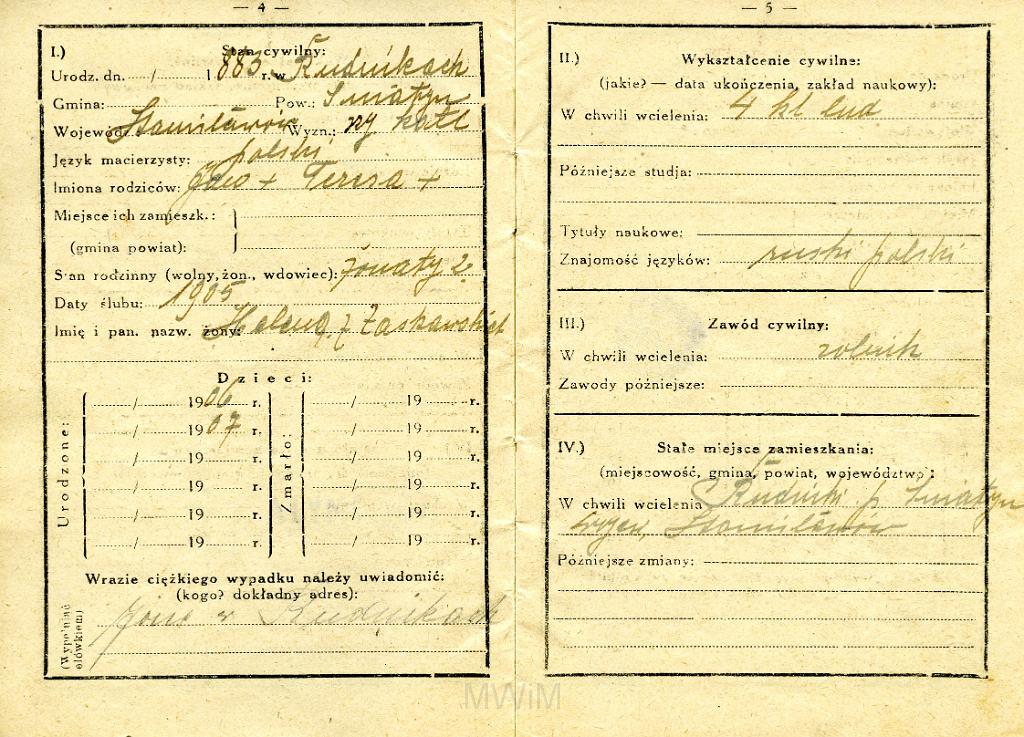 — 4 —
I.) Stan cywilny:
Urodz. dn. / 1883 r. w Rudnikach
Gmina: Pow.: Śniatyn
Wojewód. Stanisławów Wyzn.: rzy katl
Język macierzysty: polski
Imiona rodziców: + Teresa +
Miejsce ich zamieszk.:
(gmina powiat):
Stan rodzinny (wolny, żon., wdowiec): żonaty 2
Daty ślubu: 1905
Imię i pan. nazw. żony: Heleną z
Dzieci:
Urodzone:
/ 1906 r. / 19 r.
/ 1907 r. / 19 r.
/ 19 r. / 19 r.
/ 19 r. / 19 r.
/ 19 r. / 19 r.
/ 19 r. / 19 r.
Zmarło:
Wrazie ciężkiego wypadku należy uwiadomić:
(kogo? dokładny adres):
żona w Rudnikach
(Wypełniać ołówkiem)
— 5 —
II.) Wykształcenie cywilne:
(jakie? — data ukończenia, zakład naukowy):
W chwili wcielenia: 4 kl lud
Późniejsze studja:
Tytuły naukowe:
Znajomość języków: ruski polski
III.) Zawód cywilny:
W chwili wcielenia: rolnik
Zawody późniejsze:
IV.) Stałe miejsce zamieszkania:
(miejscowość, gmina, powiat, województwo):
W chwili wcielenia Rudniki p Śniatyn
Stanisławów
Późniejsze zmiany:
MWiM